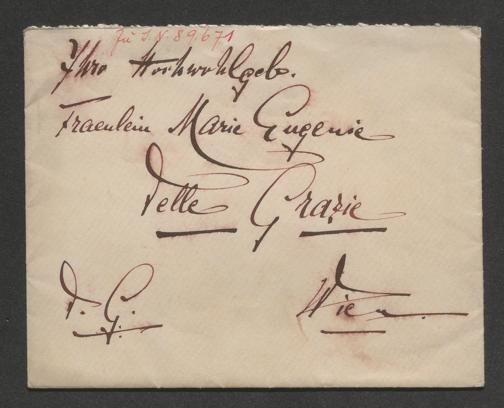 Zu I.N. 89,671
Ihro Hochwohlgeb.
Fraenlein Marie Eugenie
Delle Grazie
d. G.
Wien.